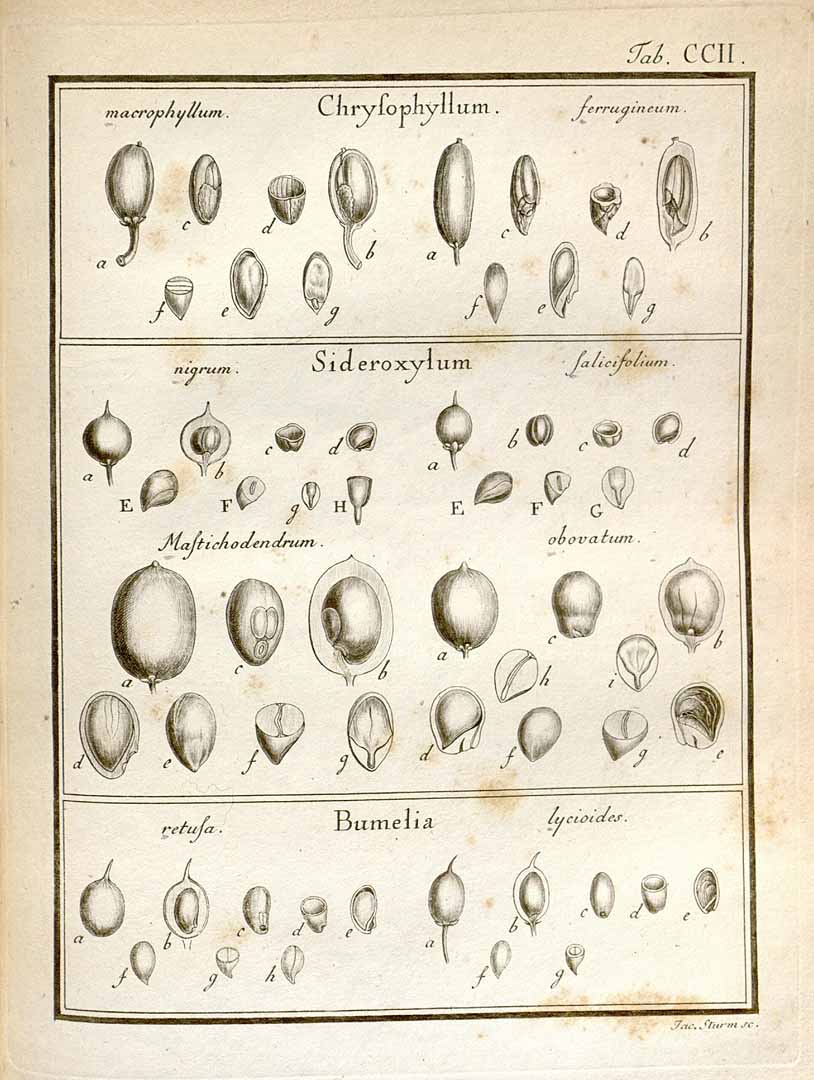 Tab. CCII.
macrophyllum. Chryſophyllum. ferrugineum.
a c d b a c d b
f e g f e g
nigrum. Sideroxylum ſalicifolium.
a b c d a b c d
E F g H E F G
Maſtichodendrum. obovatum.
a c b a c b
h i
d e f g d f g e
retuſa. Bumelia lycioides.
a b c d e a b c d e
f g h f g
Jac. Sturm sc.